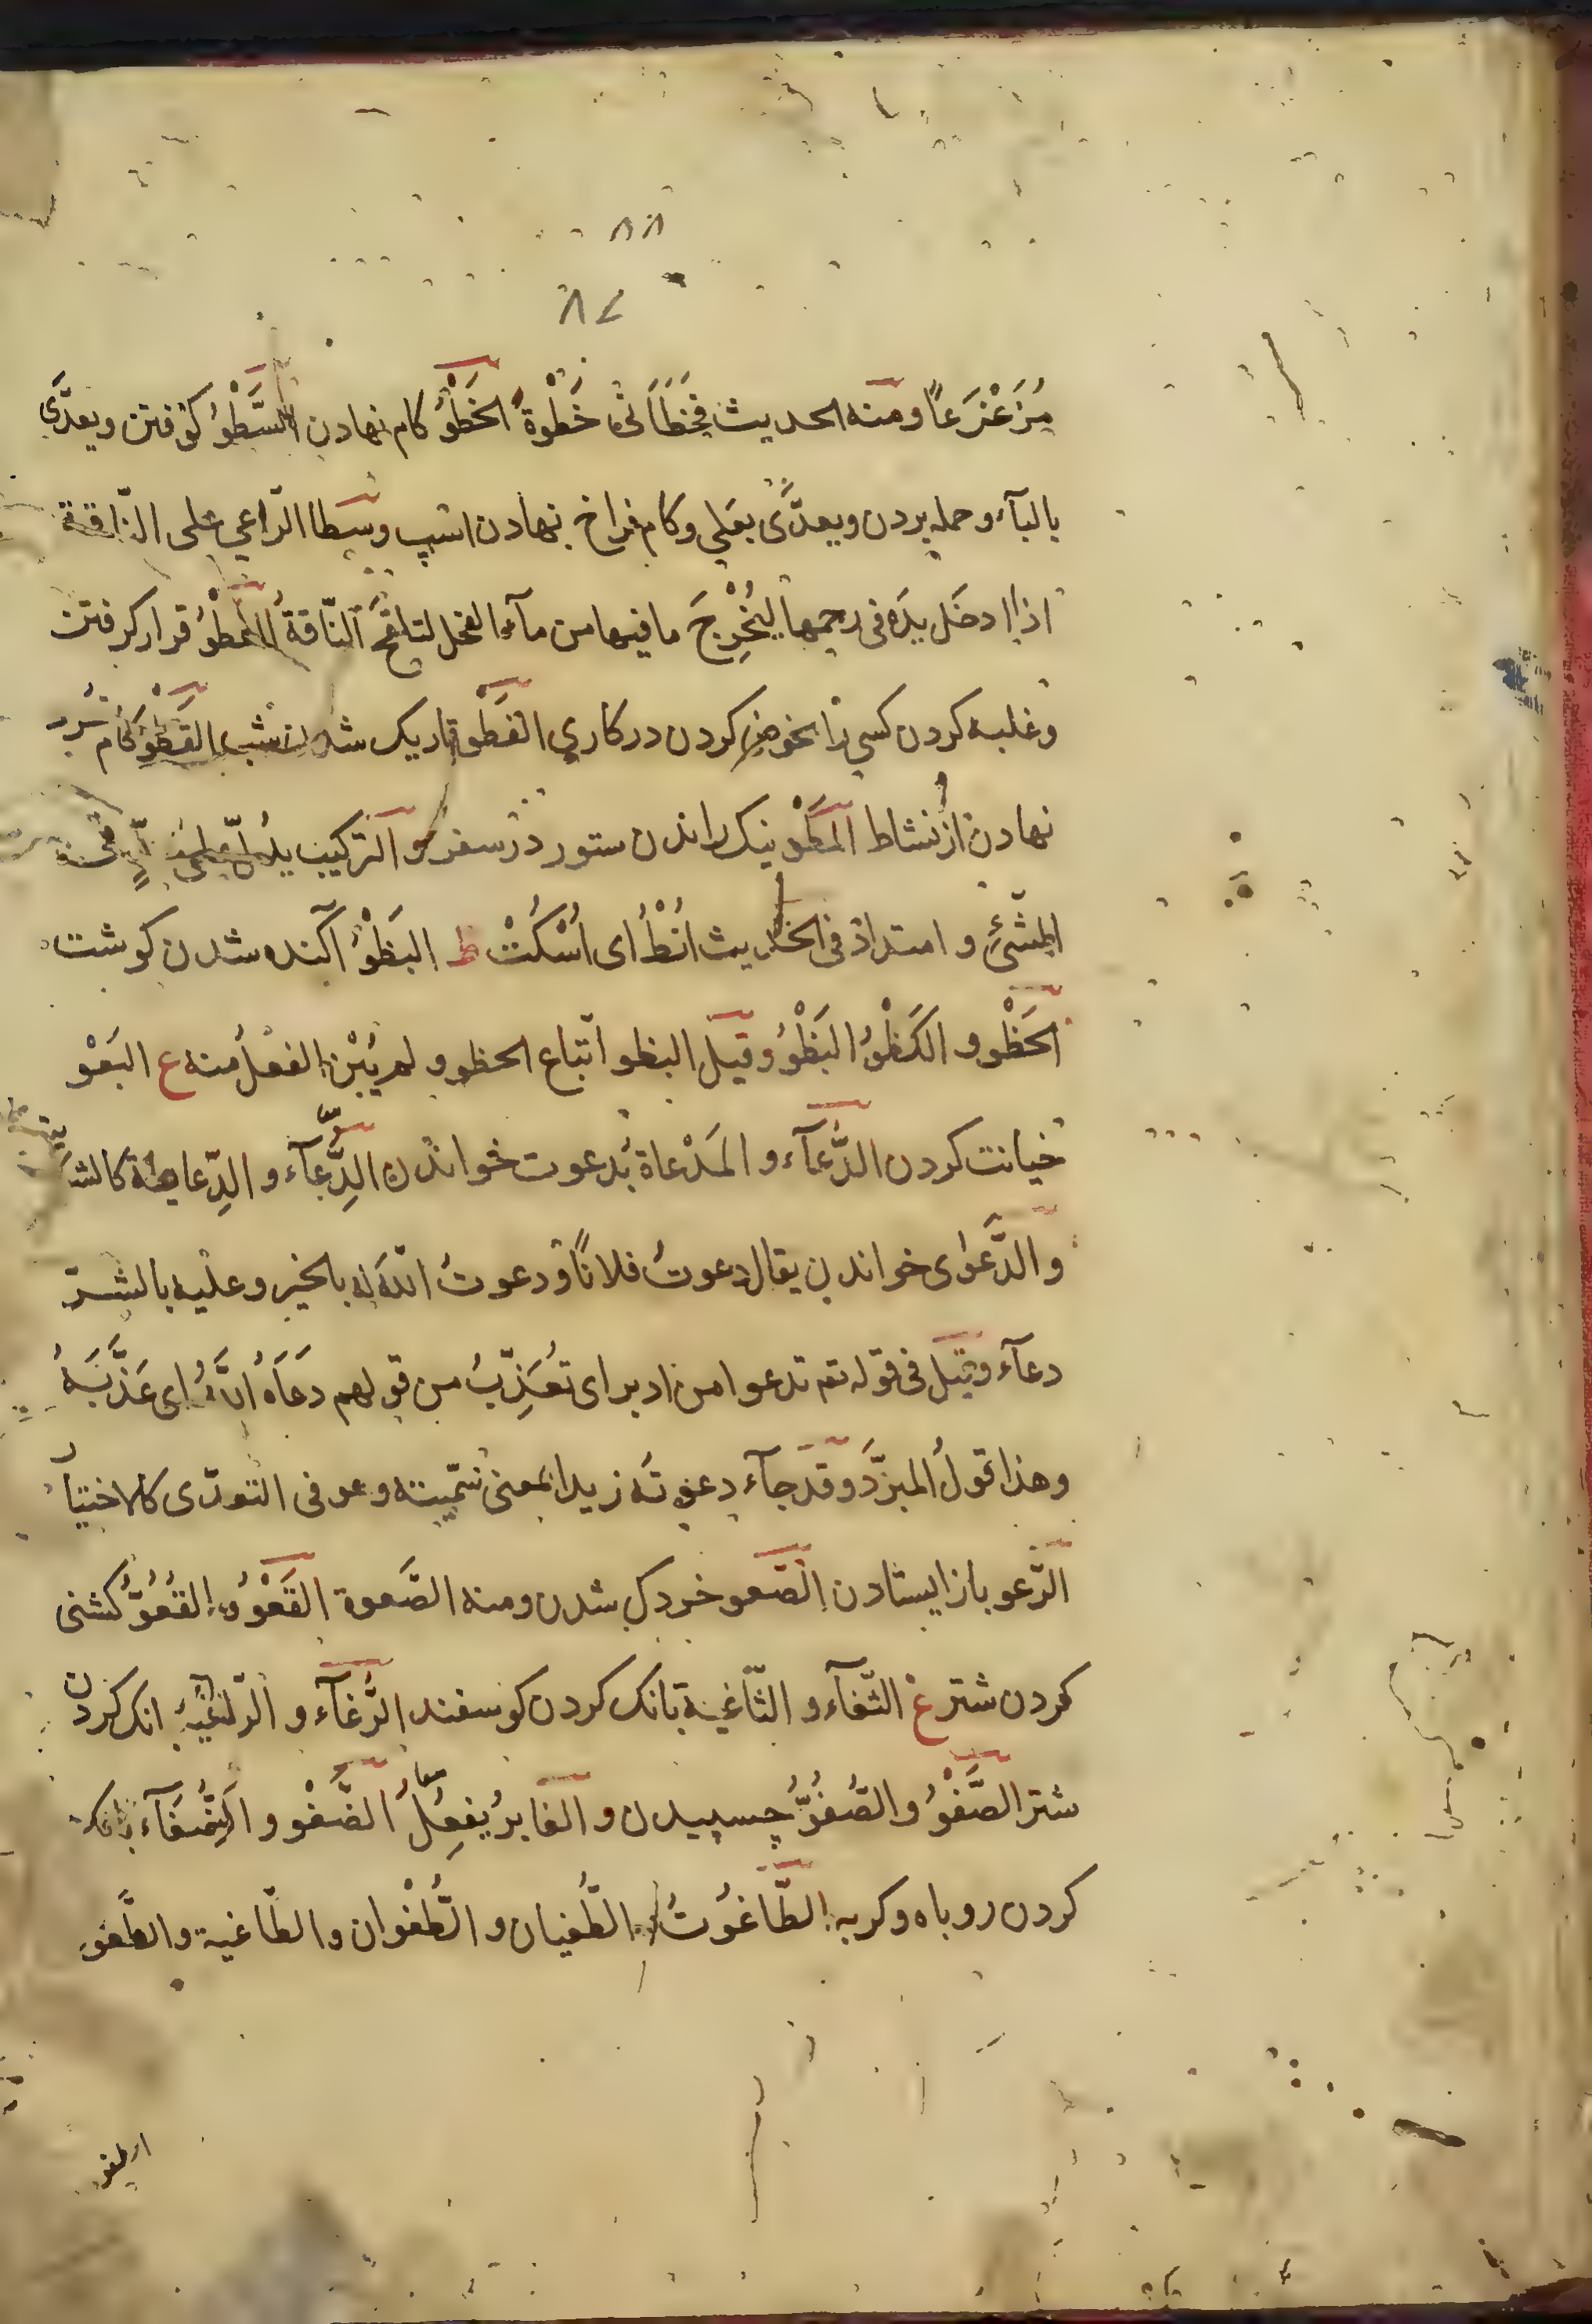 ۸۸
۸۷
مُزَعْزَعًا ومنه الحدیث فخَطَأَنی خَطْوةً الخَطْوُ کام نهادن السَّطْوُ کوفتن ویعدَّی
بالبآء وحمله بردن ویعدَّی بعَلی وکام فراخ نهادن اسپ وسَطا الرّاعی علی النّاقة
اذا ادخَل یدَه فی رحمها لیُخْرِجَ ما فیها من مآء الفحل لتلقحَ النّاقةُ قرار کرفتن
وغلبه کردن کسی را بخوض کردن در کاری الغَطْو تاریک شدن شب القَطْو کام خُرد
نهادن از نشاط المَطْو نیک راندن ستور در سفر و الترکیب یدلّ علی مدٍّ فی
المشئ و امتداد فی الحدیث اُنْطُ ای اُسْکُتْ ظ البَظْوُ آکنده شدن کوشت
الحَظْو و الکَظْوُ البَظْوُ وقیل البظو اتّباع الحظو و لم یُبْن الفعلُ منه ع البَعْو
خیانت کردن الدُّعآء و المَدْعاة بدعوت خواندن الدِّعآء و الدِّعایة کالشـ
و الدَّعوٰی خواندن یقال دعوتُ فلانًا و دعوتُ اللهَ له بالخیر و علیه بالشرّ
دعآء وقیل فی قوله تع تدعوا من ادبر ای تُعَذِّبُ من قولهم دَعَاَهُ اللَّهُ ای عَذَّبَهُ
وهذا قولُ المبرَّد وقد جآء دعوتُه زیدا بمعنی سَمّیته وهو فی التعدّی کالاختیار
الرَّعو باز ایستادن الصَّعو خردک شدن ومنه الصَّعوة القَعْوُ و القُعُوُّ کشنی
کردن شتر غ الثُّغآء و الثّاغیة بانک کردن کوسفند الرُّغآء و الرّاغیة بانک کردن
شتر الصَّغْوُ و الصُّغُوُّ چسپیدن و الغابر یُفعِلُ الضَّغْو و الضُّغَآء بانک
کردن روباه وکربه الطّاغُوتُ الطُّغیان و الطُّغْوان والطّاغیة والطَّغو